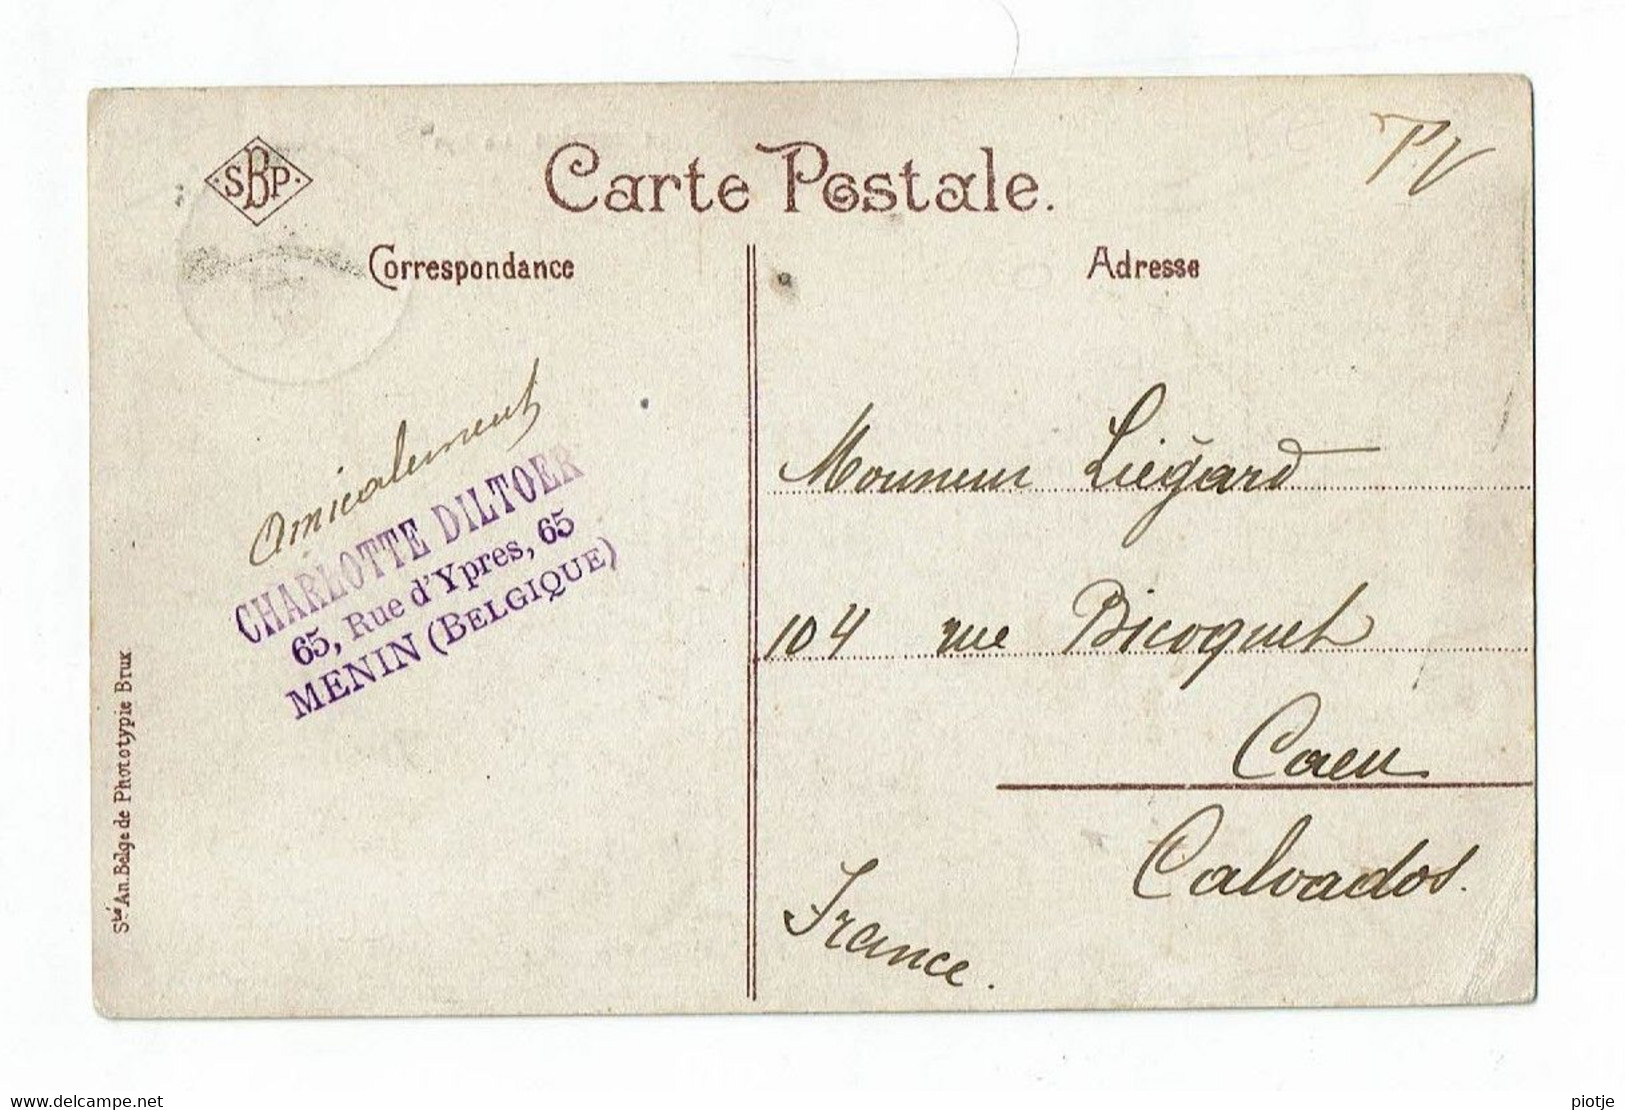 SBP
Carte Postale.
P.V
Correspondance
Adresse
Amicalement
CHARLOTTE DILTOER
65, Rue d'Ypres, 65
MENIN (BELGIQUE)
Monsieur Liégard
104 rue Bicoquet
Caen
Calvados.
France.
Sté An. Belge de Phototypie Brux
www.delcampe.net
piotje